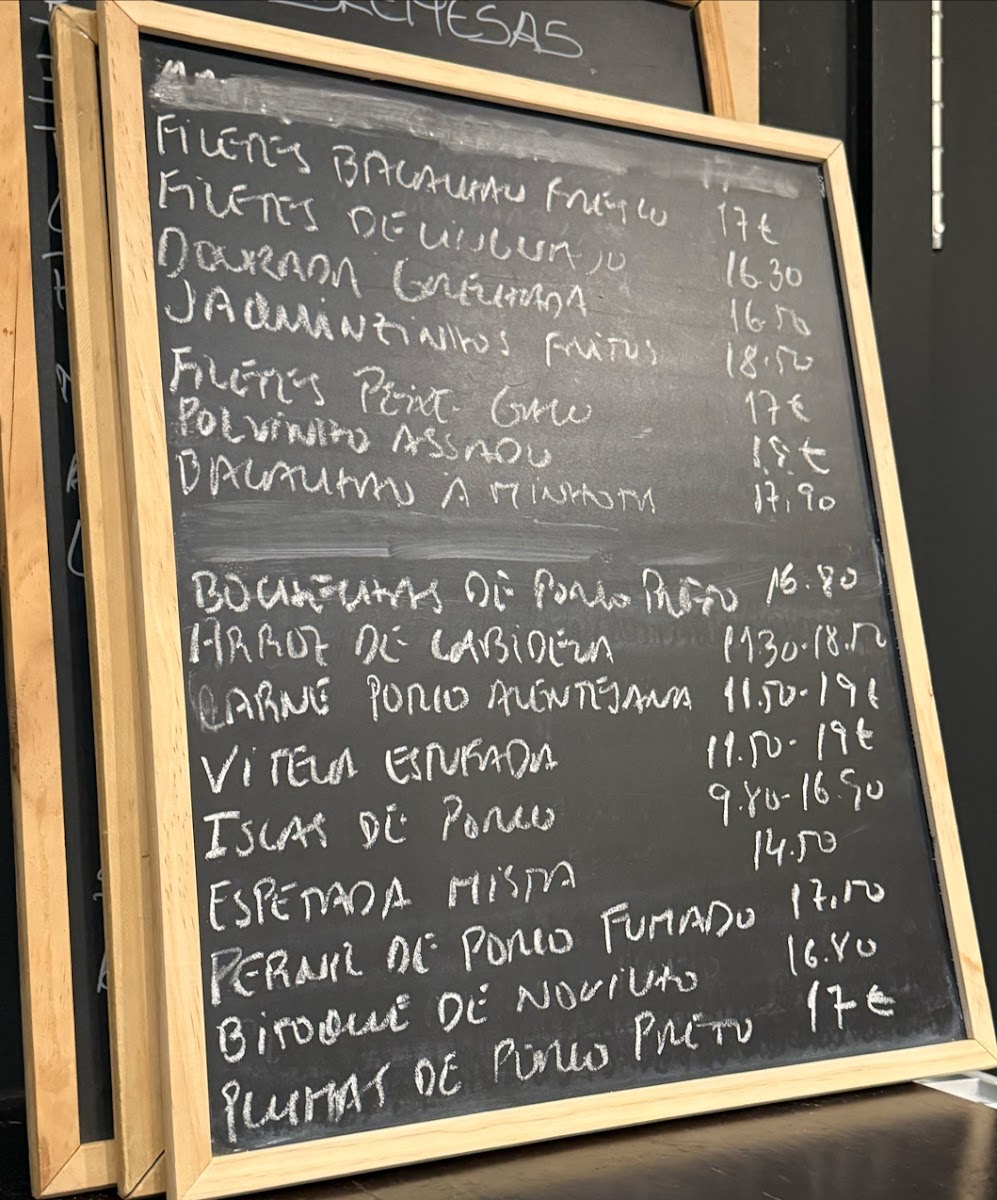 SOBREMESAS
FILETES BACALHAU FRESCO 17€
FILETES DE LINGUADO 16.30
DOURADA GRELHADA 16.50
JAQUINZINHOS FRITOS 18.50
FILETES PEIXE GALO 17€
POLVINHO ASSADO 18€
BACALHAU À MINHOTA 17,90
BOCHECHAS DE PORCO PRETO 16.80
ARROZ DE CABIDELA 11.30-18.50
CARNE PORCO ALENTEJANA 11.50-19€
VITELA ESTUFADA 11.50-19€
ISCAS DE PORCO 9.80-16.90
ESPETADA MISTA 14.50
PERNIL DE PORCO FUMADO 17.50
BITOQUE DE NOVILHO 16.80
PLUMAS DE PORCO PRETO 17€